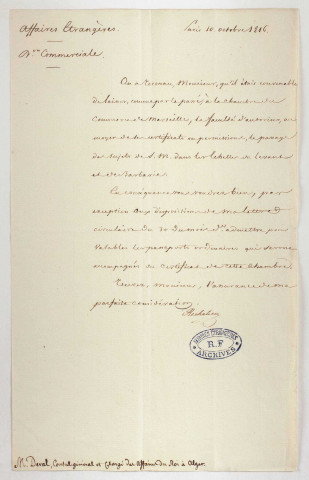 Affaires Etrangères.
Paris 10. octobre 1816.
Don Commerciale.
On a reconnu, Monsieur, qu'il était convenable
de laisser, comme par le passé, à la chambre de
Commerce de Marseille, la faculté d'autoriser, au
moyen de ses certificats ou permissions, le passage
des sujets de S. M. dans les Echelles du Levant
et de Barbarie.
En conséquence vous voudrez bien, par
exception aux dispositions de ma lettre
circulaire du 30 admettre pour
valables les passeports ordinaires qui seront
accompagnés du certificat de cette Chambre.
Recevez, Monsieur, l'assurance de ma
parfaite considération.
Richelieu
AFFAIRES ETRANGERES
R.F
ARCHIVES
M. Deval, Consul général et Chargé des Affaires du Roi à Alger.